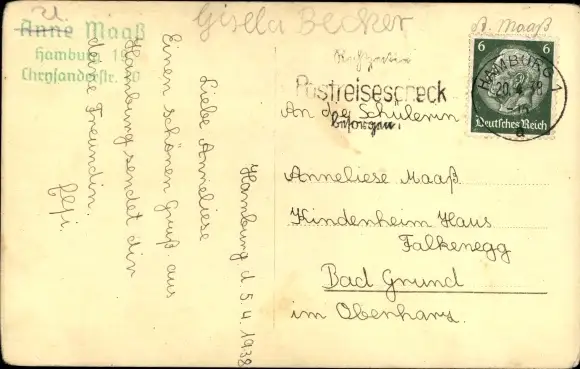 U.
Anne Maaß
Hamburg
Chrysanderstr.
Gisela Becker
A. Maaß
6 6
Deutsches Reich
HAMBURG 1
Postreisescheck
besorgen!
Hamburg d. 5. 4. 1938
Liebe Anneliese
Einen schönen Gruß aus
Hamburg sendet din
deine Freundin.
An die Schülerin
Anneliese Maaß
Kindenheim Haus
Falkenegg
Bad Grund
im Oberharz.